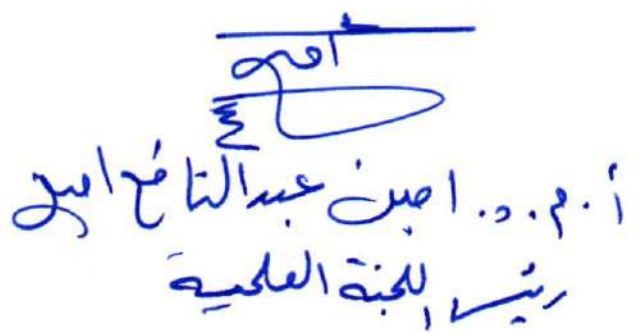 أمين
أ.م.د. امين عبد النافع امين
رئيس اللجنة العلمية